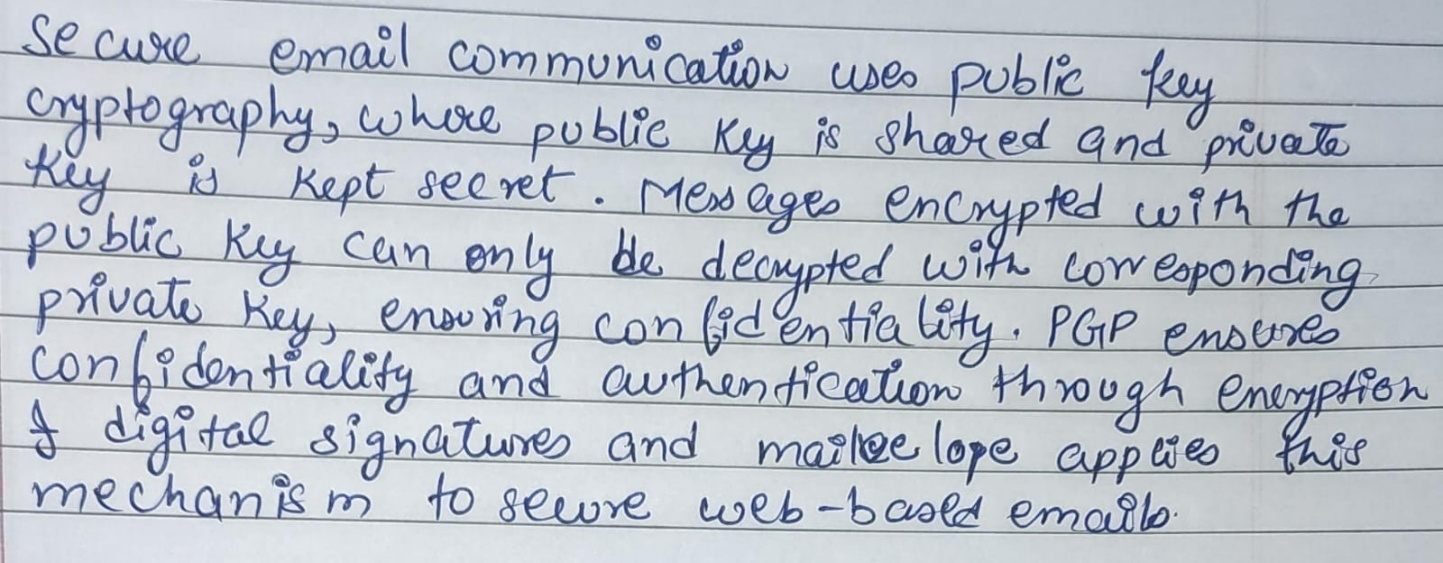 Secure email communication uses public key
cryptography, where public key is shared and private
key is kept secret. Messages encrypted with the
public key can only be decrypted with corresponding
private key, ensuring confidentiality. PGP ensures
confidentiality and authentication through encryption
& digital signatures and mailvelope applies this
mechanism to secure web-based emails.